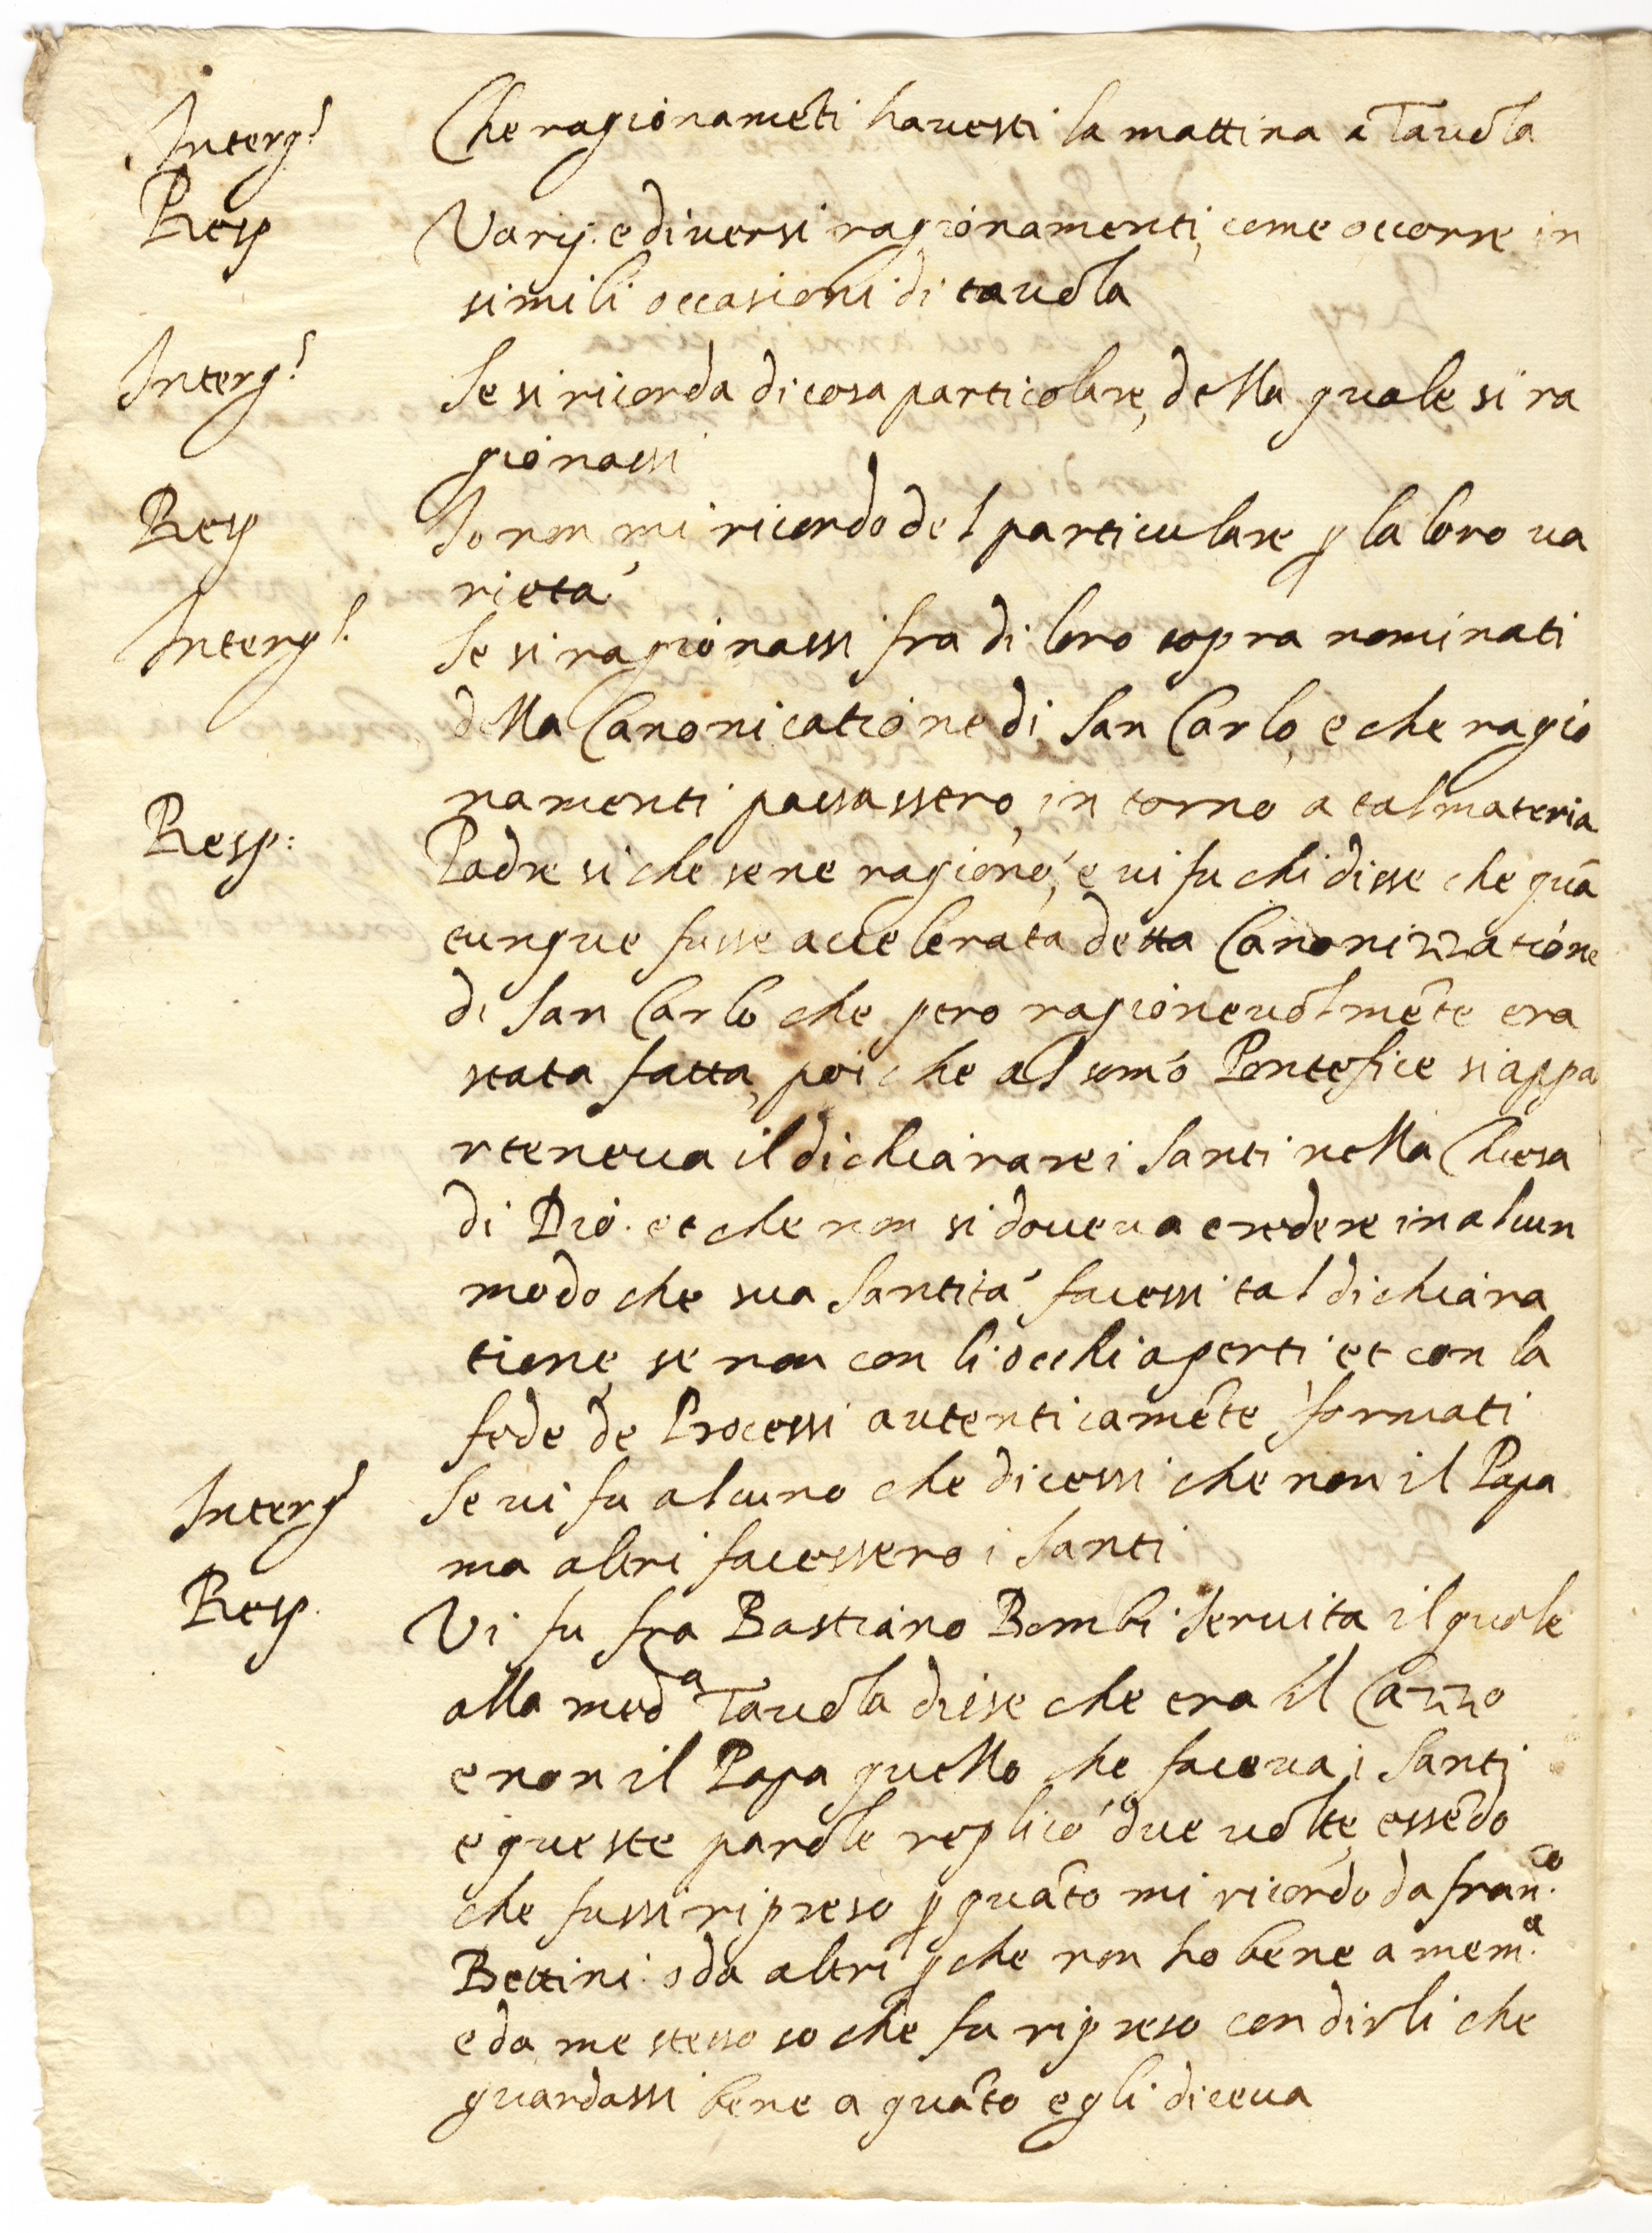 Interg.t Che ragionamēti havesti la mattina a Tavola
Resp Varij. e diversi ragionamenti, come occorre in
simili occasioni di tavola
Interg.t Se si ricorda di cosa particolare, della quale si ra
gionassi
Resp Io non mi ricordo del particulare ꝑ la loro va
rieta'
Interg.t Se si ragionassi fra di loro sopra nominati
della Canonicatione di San Carlo, e che ragio
namenti passassero, in torno a tal materia
Resp: Padre si che se ne ragionó, e vi fu chi disse che quā
tunque fusse accelerata detta Canonizzatione
di San Carlo che pero ragionevolmēte era
stata fatta, poi che al somō Pontefice si appa
rteneva il dichiarare i Santi nella Chiesa
di Dio. et che non si doveva credere in alcun
modo che sua Santita' facessi tal dichiara
tione, se non con li occhi aperti et con la
fede de Processi autenticamēte formati
Interg.t Se vi fu alcuno che dicessi che non il Papa
ma altri facessero i Santi
Resp. Vi fu fra Bastiano Bombi Servita il quale
alla med.a Tavola disse che era il Cazzo
e non il Papa quello che faceva i Santi
e queste parole replicó due volte, essēdo
che fussi ripreso ꝑ quāto mi ricordo da Fran.co
Bettini o da altri ꝑche non ho bene a mem.a
e da me stesso so che fu ripreso con dirli che
guardassi bene a quāto egli diceva